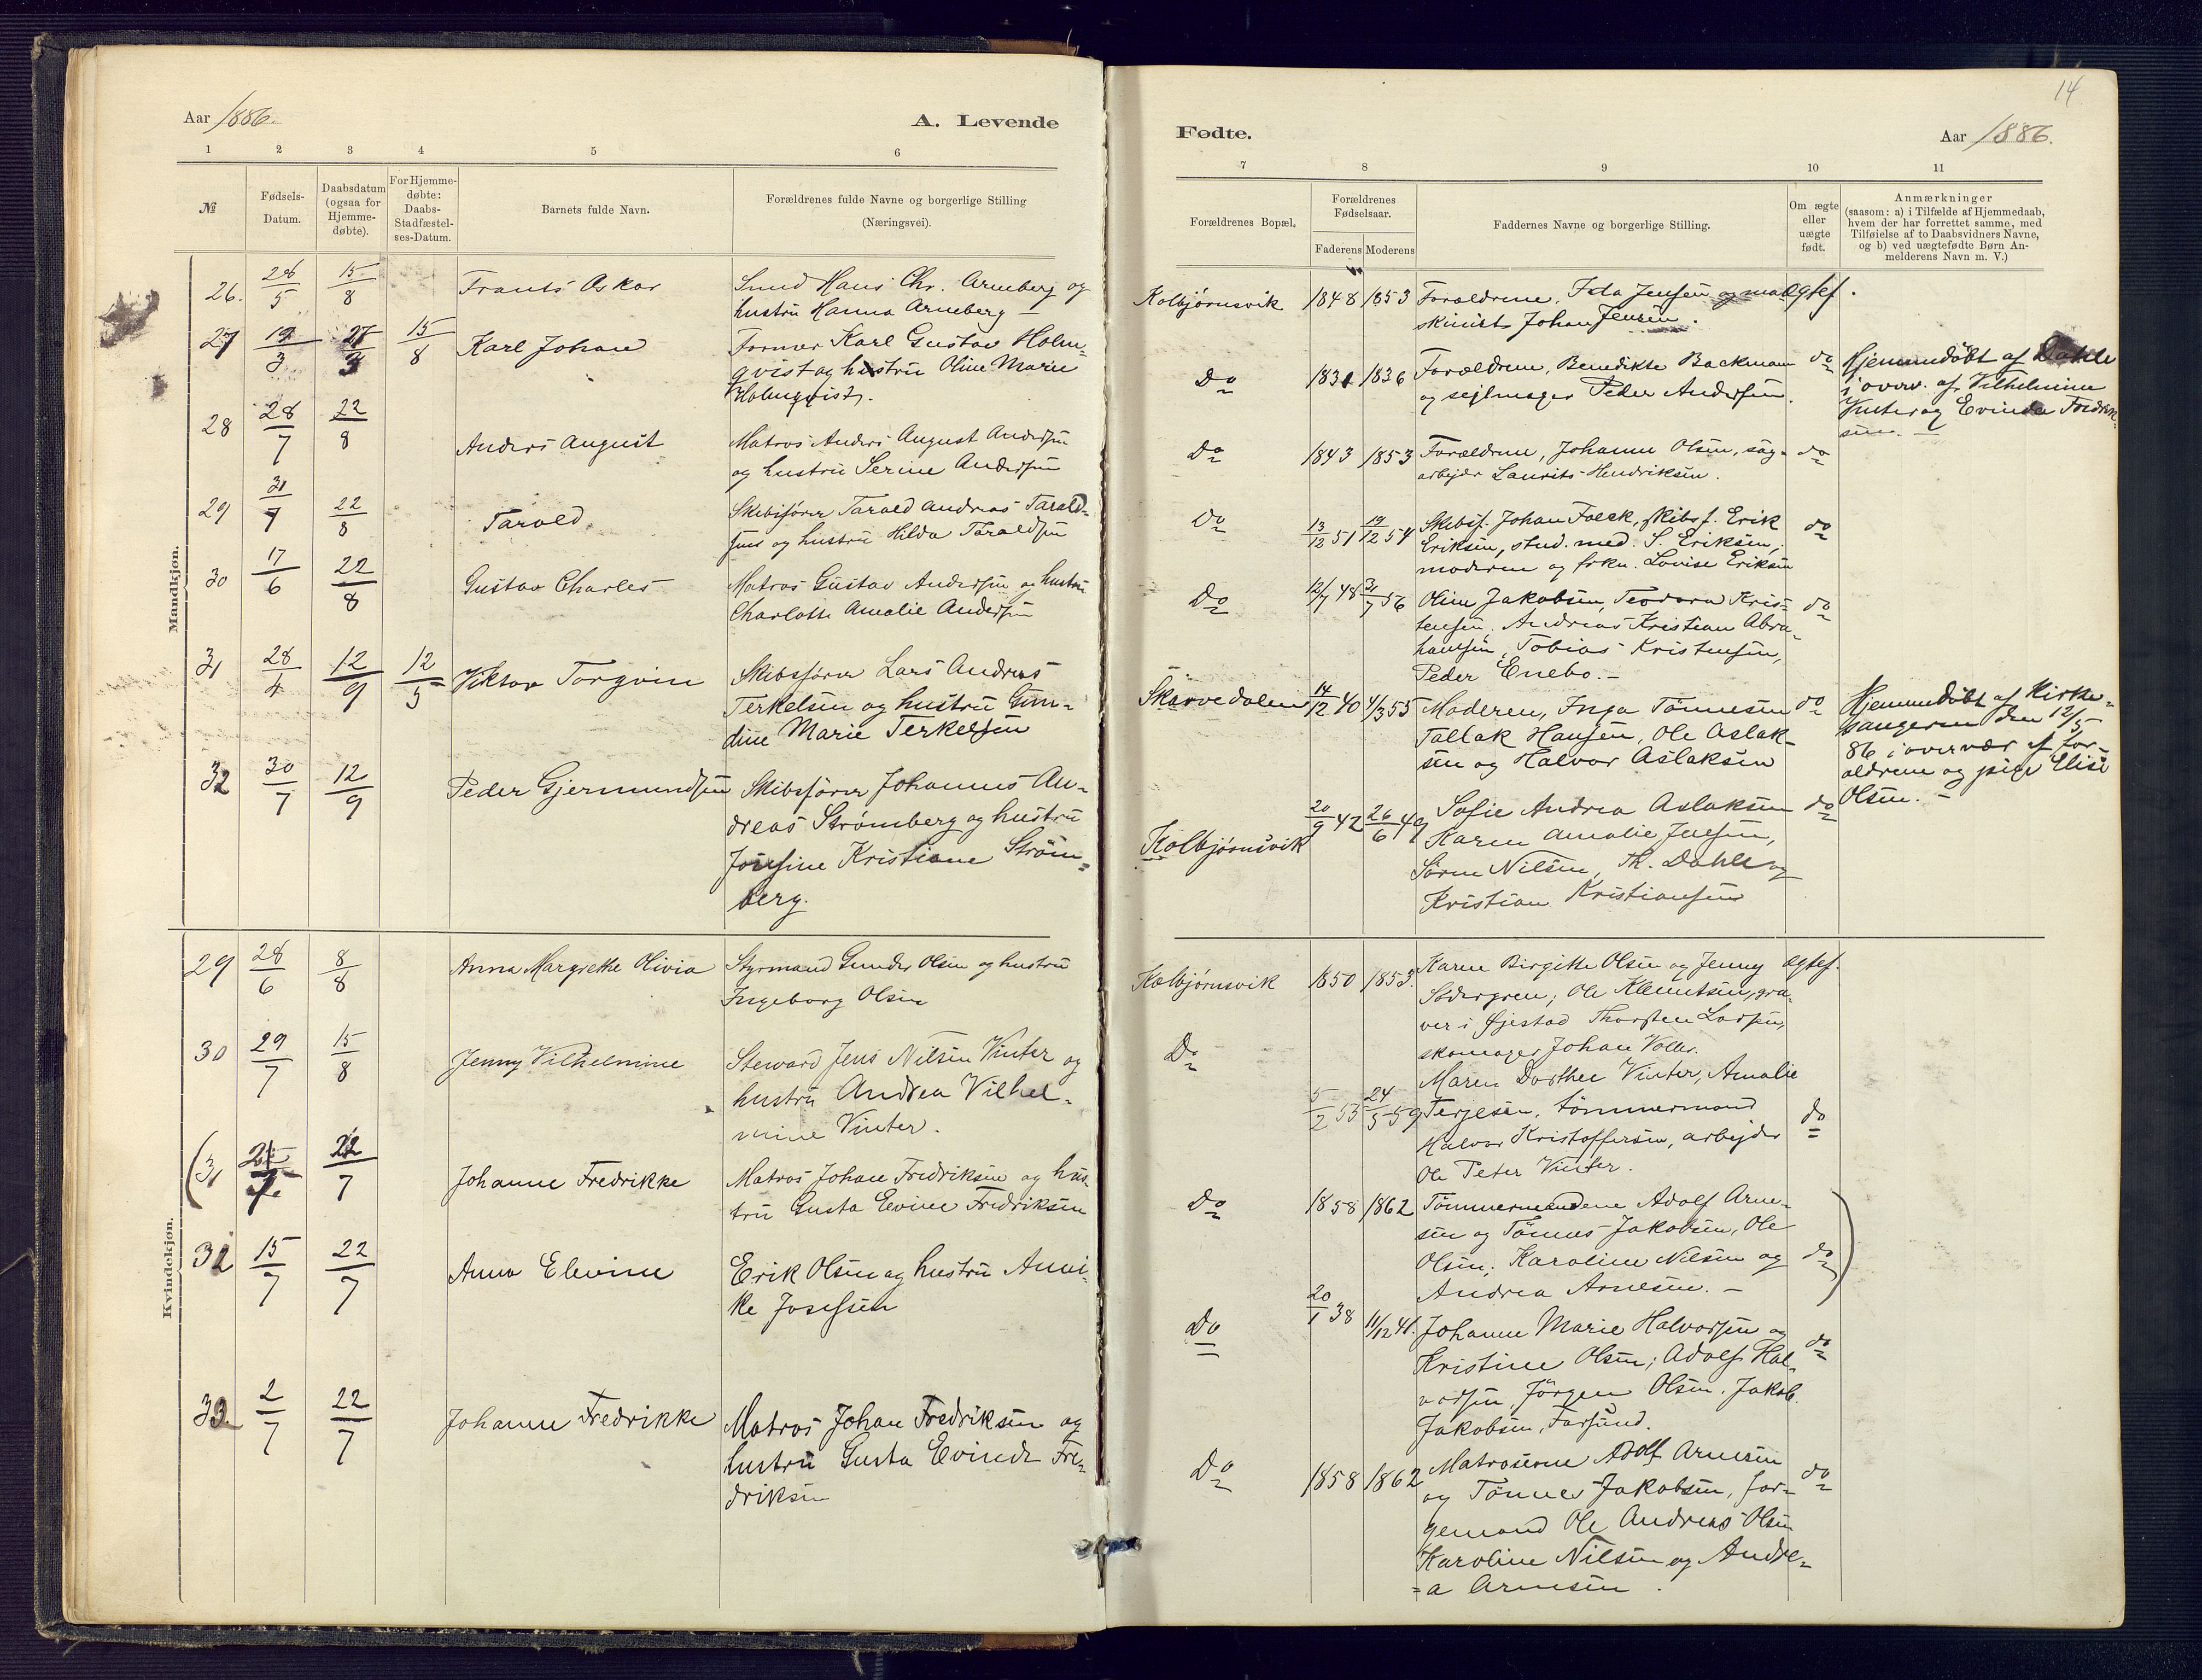 14
Aar 1886.
A. Levende
Fødte.
Aar 1886.
1 2 3 4 5 6
7 8 9 10 11
№
Fødsels-
Datum.
Daabsdatum
(ogsaa for
Hjemme-
døbte).
For Hjemme-
døbte:
Daabs-
Stadfæstel-
ses-Datum.
Barnets fulde Navn.
Forældrenes fulde Navne og borgerlige Stilling
(Næringsvei).
Forældrenes Bopæl.
Forældrenes
Fødselsaar.
Faderens Moderens
Faddernes Navne og borgerlige Stilling.
Om ægte
eller
uægte
født.
Anmærkninger
(saasom: a) i Tilfælde af Hjemmedaab,
hvem der har forrettet samme, med
Tilføielse af to Daabsvidners Navne,
og b) ved uægtefødte Børn An-
melderens Navn m. V.)
Mandkjøn.
26. 26/5 15/8 Frants Oskar
Smed Hans Chr. Arneberg og
hustru Hanna Arneberg
Kolbjørnsvik 1848 1853
Forældrene, Ida Jensen og ma-
skinist Johan Jensen.
Ægtef.
27 19/3 15/8 Karl Johan
Former Karl Gustav Holm-
qvist og hustru Oline Marie
Holmqvist.
Do 1831 1836
Forældrene, Benedikte Backmann
og sejlmager Peder Andersen.
do
Hjemmedøbt af Dahle
i overv. af Vilhelmine
Vinter og Evinda Fredrik-
sen. —
28 28/7 22/8 Anders August
Matros Anders August Andersen
og hustru Serine Andersen
Do 1843 1853
Forældrene, Johanne Olsen, sag-
arbejder Laurits Hendriksen.
do
29 31/7 22/8 Tarald
Skibsfører Tarald Andreas Tarald-
sen og hustru Hilda Taraldsen
Do 13/12 51 19/12 54
Skibsf. Johan Falck, skibsf. Erik
Eriksen, stud. med. S. Eriksen,
moderen og frkn. Lovise Eriksen
do
30 17/6 22/8 Gustav Charles
Matros Gustav Andersen og hustru
Charlotte Amalie Andersen
Do 12/7 48 31/7 56
Oline Jakobsen, Teodora Kris-
tensen. Andreas Kristian Abra-
hamsen, Tobias Kristensen,
Peder Enebo. —
do
31 28/4 12/9 12/5 Viktor Torgvin
Skibsfører Lars Andreas
Terkelsen og hustru Gun-
dine Marie Terkelsen
Skarvedalen 14/12 40 4/3 55
Moderen, Inga Tønnesen
Tallak Hansen, Ole Aslak-
sen og Halvor Aslaksen
do
Hjemmedøbt af Kirke-
sangeren den 12/5
86 i overvær af for-
ældrene og pige Elise
Olsen. —
32 30/7 12/9 Peder Gjermundsen
Skibsfører Johannes An-
dreas Strømberg og hustru
Josefine Kristiane Strøm-
berg.
Kolbjørnsvik 20/9 42 26/6 49
Sofie Andrea Aslaksen
Karen Amalie Jensen,
Søren Nilsen, Th. Dahle og
Kristian Kristiansen
do
Kvindekjøn.
29 28/6 8/8 Anna Margrethe Olivia
Styrmand Gunder Olsen og hustru
Ingeborg Olsen
Kolbjørnsvik 1850 1853.
Karen Birgitte Olsen og Jenny
Södergren; Ole Klemetsen, gra-
ver i Øjestad Thorsten Larsen,
skomager Johan Voller.
Ægtef.
30 29/7 15/8 Jenny Vilhelmine
Steward Jens Nilsen Vinter og
hustru Andrea Vilhel-
mine Vinter.
Do 5/2 53 24/5 59
Maren Dorthee Vinter, Amalie
Terjesen, tømmermand
Halvor Kristoffersen, arbejder
Ole Peter Vinter.
do
(31 22/7 Johanne Fredrikke
Matros Johan Fredriksen og hus-
tru Gusta Evine Fredriksen
Do 1858 1862
Tømmermændene Adolf Arne-
sen og Tønnes Jakobsen, Ole
Olsen; Karoline Nilsen og
Andrea Arnesen. —
do)
32 15/7 22/7 Anna Elevine
Erik Olsen og hustru Anni-
ke Josefsen
Do 20/1 38 11/12 41.
Johanne Marie Halvorsen og
Kristine Olsen; Adolf Hal-
vorsen, Jørgen Olsen. Jakob
Jakobsen, Farsund.
do
33 2/7 22/7 Johanne Fredrikke
Matros Johan Fredriksen og
hustru Gusta Evinde Fre-
driksen
Do 1858 1862
Matroserne Adolf Arnesen
og Tønnes Jakobsen, for-
gemand Ole Andreas Olsen
Karoline Nilsen og Andre-
-a Arnesen.
do